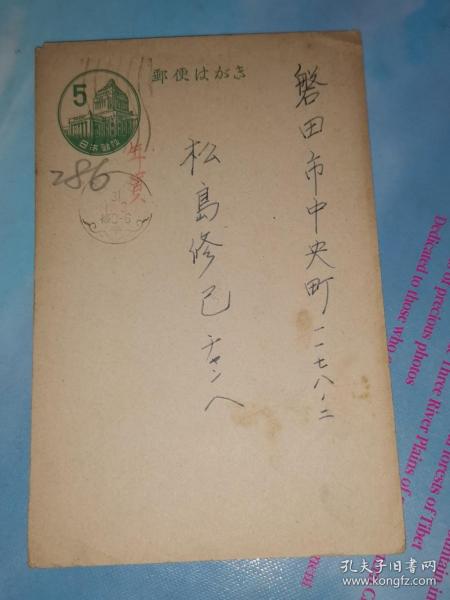 郵便はがき
5
日本郵便
年賀
286
31
后0-6
磐田市中央町一一七八ノ二
松島修己チャンへ
of precious photos
Dedicated to those who
Three River Plains of
forests of Tibet
孔夫子旧书网
www.kongfz.com